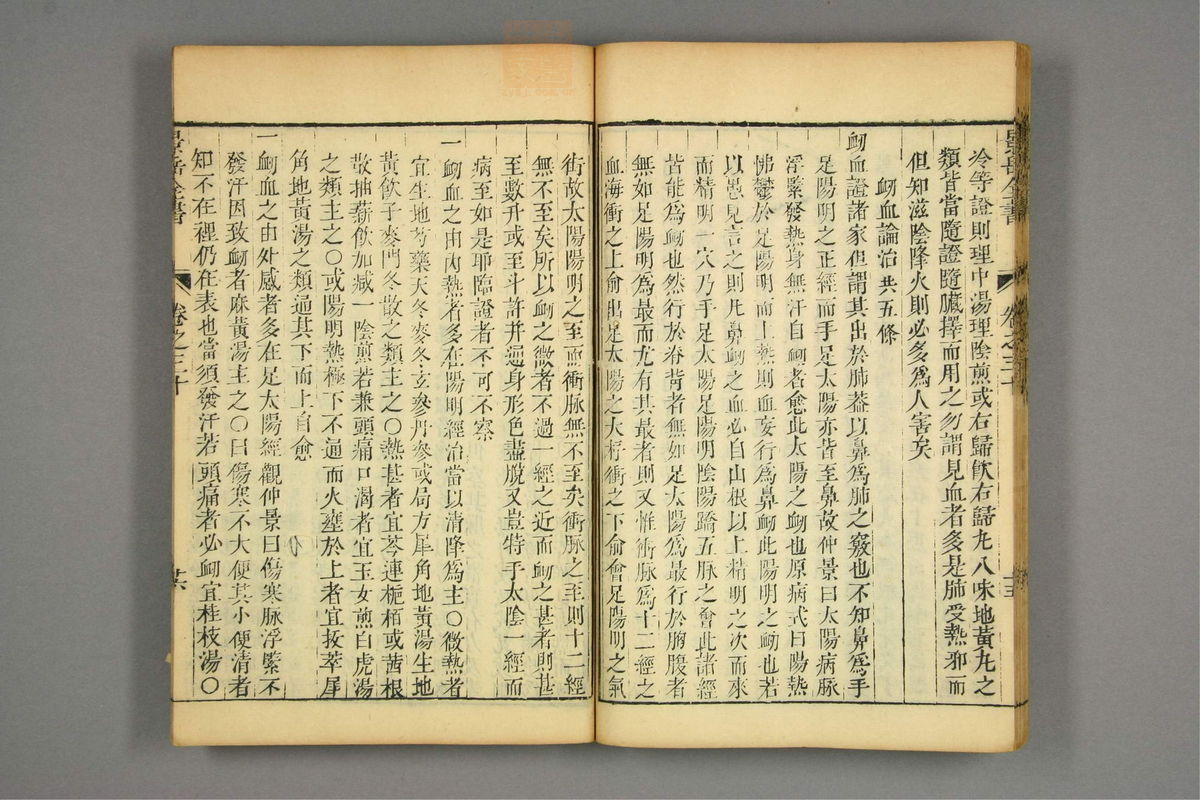 景岳全書
卷之三十
冷等證則理中湯理陰煎或右歸飲右歸丸八味地黃丸之
類皆當隨證隨臟擇而用之勿謂見血者多是肺受熱邪而
但知滋陰降火則必多爲人害矣
衄血論治 共五條
衄血證諸家但謂其出於肺葢以鼻爲肺之竅也不知鼻爲手
足陽明之正經而手足太陽亦皆至鼻故仲景曰太陽病脉
浮緊發熱身無汗自衄者愈此太陽之衄也原病式曰陽熱
怫鬱於足陽明而上熱則血妄行爲鼻衄此陽明之衄也若
以愚見言之則凡鼻衄之血必自山根以上精明之次而來
而精明一穴乃手足太陽足陽明陰陽蹻五脉之會此諸經
皆能爲衄也然行於脊背者無如足太陽爲最行於胸腹者
無如足陽明爲最而尤有其最者則又惟衝脉爲十二經之
血海衝之上俞出足太陽之大杼衝之下俞會足陽明之氣
街故太陽陽明之至而衝脉無不至矣衝脉之至則十二經
無不至矣所以衄之微者不過一經之近而衄之甚者則甚
至數升或至斗許并通身形色盡脫又豈特手太陰一經而
病至如是耶臨證者不可不察
一衄血之由內熱者多在陽明經治當以清降爲主○微熱者
宜生地芍藥天冬麥冬玄參丹參或局方犀角地黃湯生地
黃飲子麥門冬散之類主之○熱甚者宜芩連梔栢或茜根
散抽薪飲加減一陰煎若兼頭痛口渴者宜玉女煎白虎湯
之類主之○或陽明熱極下不通而火壅於上者宜拔萃犀
角地黃湯之類通其下而上自愈
一衄血之由外感者多在足太陽經觀仲景曰傷寒脉浮緊不
發汗因致衄者麻黃湯主之○曰傷寒不大便其小便清者
知不在裡仍在表也當須發汗若頭痛者必衄宜桂枝湯○
景岳全書
卷之三十
廿六